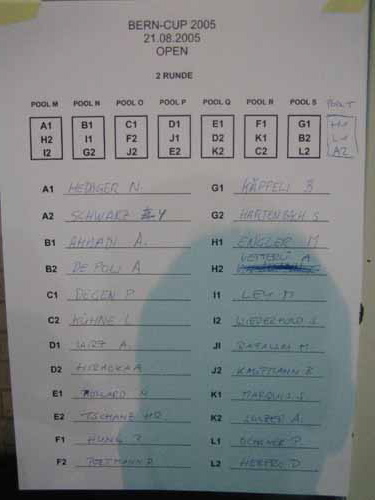 BERN-CUP 2005
21.08.2005
OPEN
2 RUNDE
POOL M POOL N POOL O POOL P POOL Q POOL R POOL S POOL T
A1 B1 C1 D1 E1 F1 G1 H1
H2 I1 F2 J1 D2 K1 B2 L1
I2 G2 J2 E2 K2 C2 L2 A2
A1 HEDIGER N. G1 KÄPPELI B
A2 SCHWARZ Y G2 HARTENBACH S
B1 AHMADI A. H1 ENGLER M
B2 DE POLI A H2 VETTERLI A
C1 DEGEN P I1 LEY M
C2 KÜHNE L I2 S
D1 WIRZ A. J1 M
D2 HIRAOKA A J2 KAUFMANN B
E1 K1 MARQUIS S
E2 TSCHANZ HP K2 SULZER A.
F1 HUNG L1 P
F2 L2 D